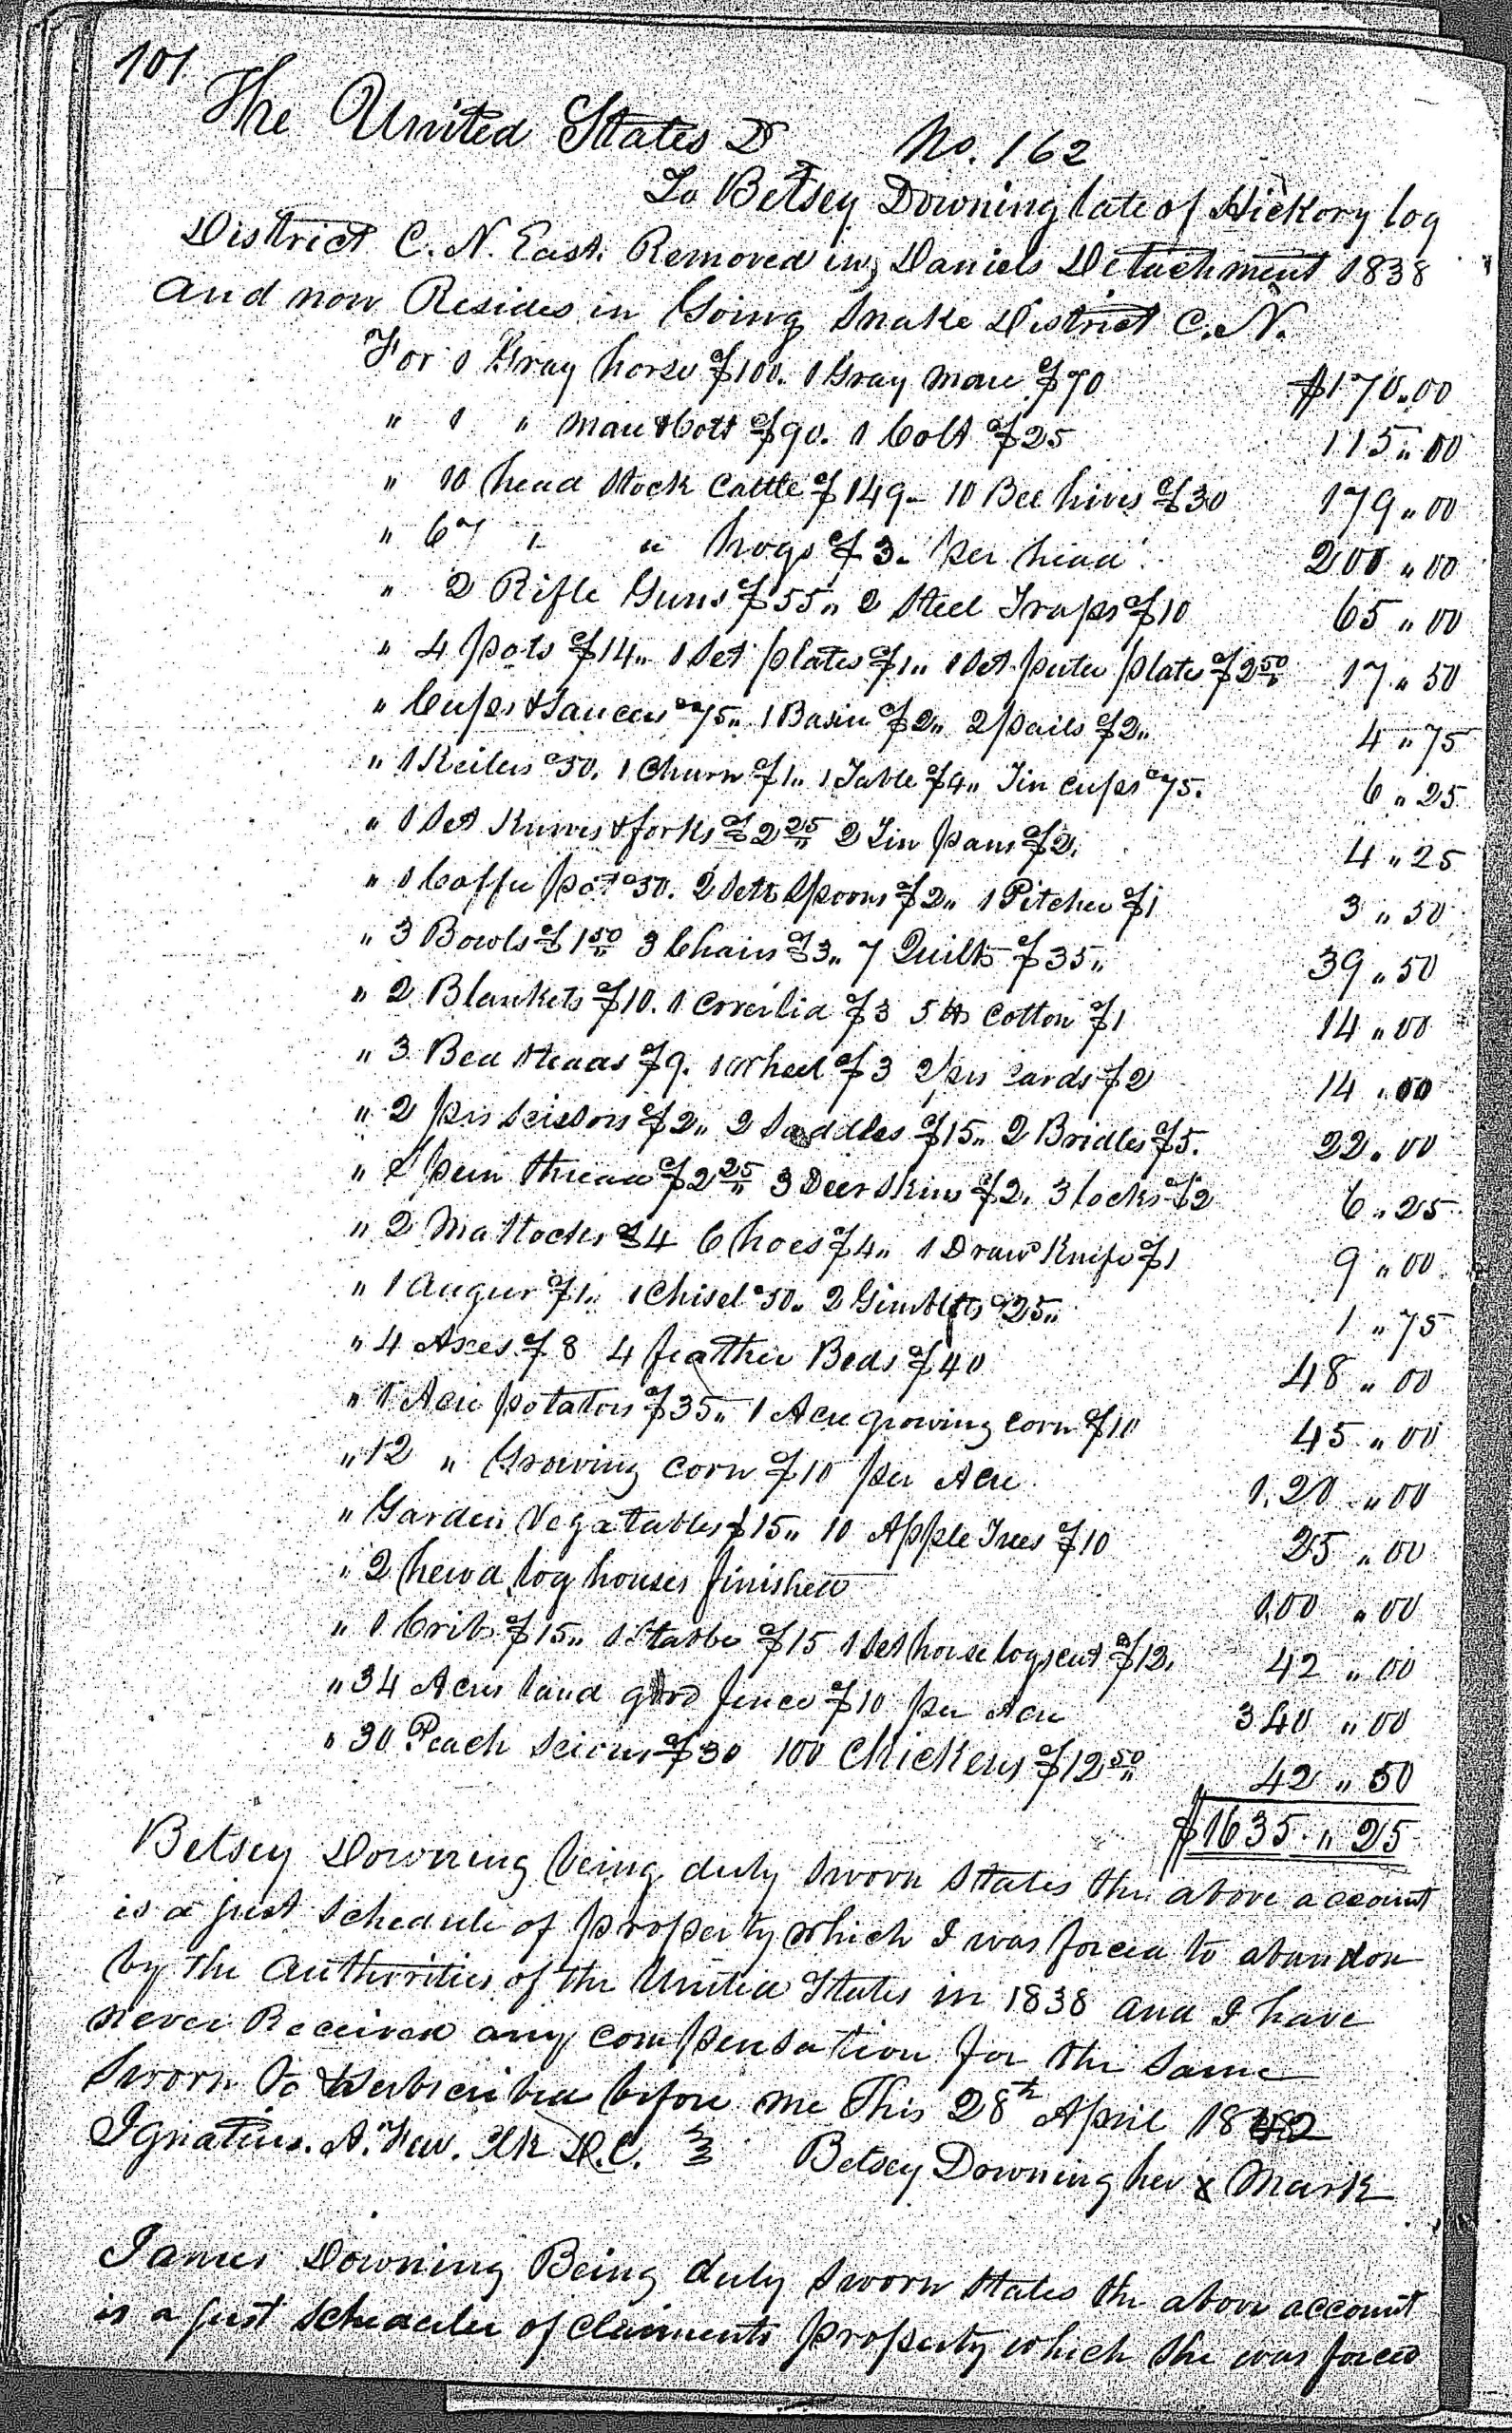 101
The United States Dr No. 162
To Betsey Downing late of Hickory log
District C. N. East. Removed in Daniels Detachment 1838
and now Resides in Going Snake District C. N.
For 1 Gray horse $100. 1 Gray mare $70 $170.00
" 1 " mare & Colt $90. 1 Colt $25 115 " 00
" 10 head Stock Cattle $149 - 10 Bee hives $30 179 " 00
" 67 " " hogs $3. per head 200 " 00
" 2 Rifle Guns $55 " 2 Steel Traps $10 65 " 00
" 4 pots $14 " 1 Set plates $1 " 1 Set puter plates $2.50 17 " 50
" Cups & Saucers 75 " 1 Basin $2 " 2 pails $2 " 4 " 75
" 1 Keilers 50. 1 Churn $1 " 1 Table $4 " Tin Cups 75. 6 " 25
" 1 Set Knives & forks $2.25 2 Tin pans $2. 4 " 25
" 1 Coffee pot 50. 2 Setts Spoons $2 " 1 Pitcher $1 3 " 50
" 3 Bowls $1.50 3 Chairs $3 " 7 Quilts $35 " 39 " 50
" 2 Blankets $10. 1 Coverlid $3 5 lbs Cotton $1 14 " 00
" 3 Bed Steads $9. 1 Wheel $3 2 prs Cards $2 14 " 00
" 2 prs Scissors $2 " 2 Saddles $15 " 2 Bridles $5. 22 " 00
" Spun thread $2.25 3 Deer Skins $2. 3 locks $2 6 " 25
" 2 Mattocks $4 6 hoes $4 " 1 Draw Knife $1 9 " 00
" 1 Auger $1 " 1 Chisel 50 " 2 Gimblets 25 " 1 " 75
" 4 Axes $8 4 feather Beds $40 48 " 00
" 1 Acre potatoes $35 " 1 Acre growing corn $10 45 " 00
" 12 " Growing corn $10 per Acre 120 " 00
" Garden Vegatables $15 " 10 Apple Trees $10 25 " 00
" 2 hewd log houses finished 100 " 00
" 1 Crib $15 " 1 Stable $15 1 Set house logs cut $12. 42 " 00
" 34 Acres land good fence $10 per Acre 340 " 00
" 30 Peach Scions $30 100 Chickens $12.50 42 " 50
$1635 " 25
Betsey Downing being duly Sworn States the above account
is a just Schedule of property which I was forced to abandon
by the authorities of the United States in 1838 and I have
never Received any compensation for the Same
Sworn to & Subscribed before me This 28th April 1842
Ignatius. A. Few. Clk D.C. Betsey Downing her x Mark
James Downing Being duly Sworn States the above account
is a just Scheduler of Claiments property which She was forced